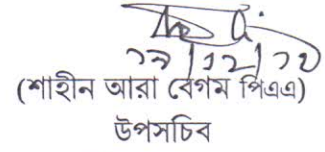 ১৯/১২/১৩
(শাহীন আরা বেগম পিএএ)
উপসচিব